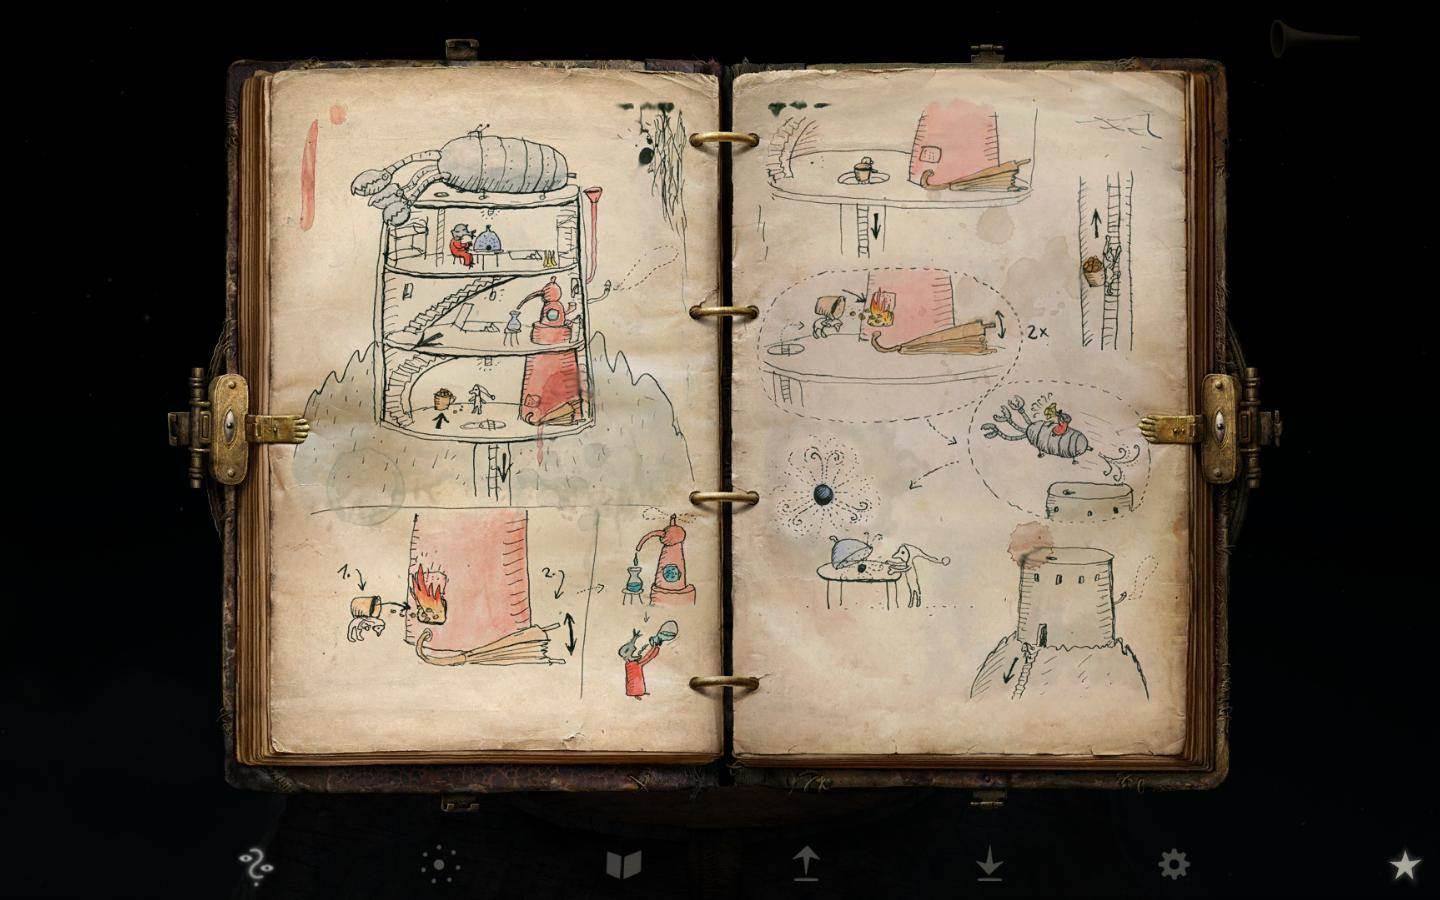 1.
2.
2x